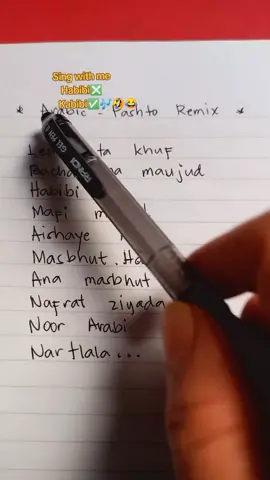 Sing with me
Habibi❎
Kabibi✅🎶🤣😂
* Arabic - Pashto Remix *
ta khuf
maujud
Habibi
Mafi
Aishaye
Masbhut
Ana masbhut
Nafrat ziyada
Noor Arabi
Nartlala...